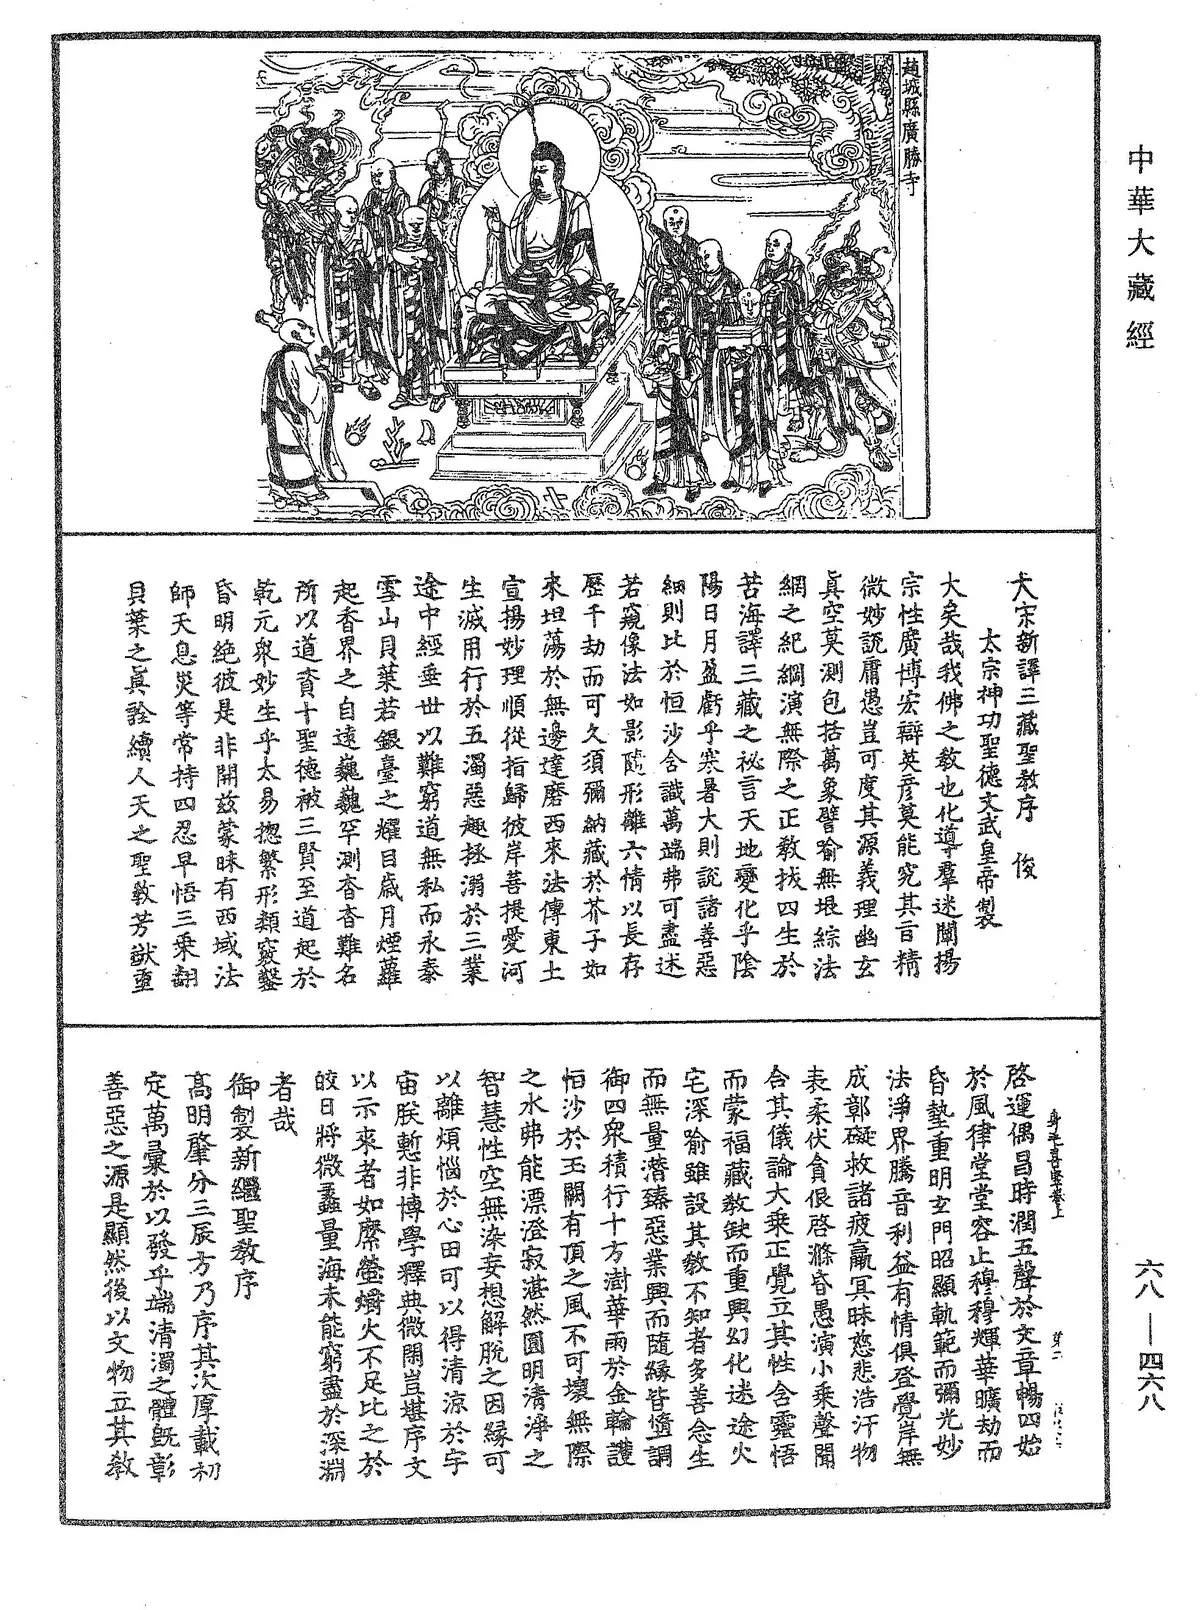 中華大藏經
趙城縣廣勝寺
大宋新譯三藏聖教序　俊
太宗神功聖德文武皇帝製
大矣哉我佛之教也化導羣迷闡揚
宗性廣博宏辯英彦莫能究其言精
微妙說庸愚豈可度其源義理幽玄
真空莫測包括萬象譬喻無垠綜法
網之紀綱演無際之正教拔四生於
苦海譯三藏之祕言天地變化乎陰
陽日月盈虧乎寒暑大則說諸善惡
細則比於恒沙含識萬端弗可盡述
若窺像法如影隨形離六情以長存
歷千劫而可久須彌納藏於芥子如
來坦蕩於無邊達磨西來法傳東土
宣揚妙理順從指歸彼岸菩提愛河
生滅用行於五濁惡趣拯溺於三業
途中經垂世以難窮道無私而永泰
雪山貝葉若銀臺之耀目歲月煙蘿
起香界之自遠巍巍罕測杳杳難名
所以道資十聖德被三賢至道起於
乾元衆妙生乎太易揔繁形類竅鑿
昏明絶彼是非開兹蒙昧有西域法
師天息災等常持四忍早悟三乘翻
貝葉之真詮續人天之聖教芳猷重
啓運偶昌時潤五聲於文章暢四始
於風律堂堂容止穆穆輝華曠劫而
昏蟄重明玄門昭顯軌範而彌光妙
法淨界騰音利益有情俱登覺岸無
成鄣礙救諸疲羸冥昧慈悲浩汗物
表柔伏貪佷啓滌昏愚演小乘聲聞
合其儀論大乘正覺立其性含靈悟
而蒙福藏教缺而重興幻化迷途火
宅深喻雖設其教不知者多善念生
而無量潛臻惡業興而隨緣皆墮調
御四衆積行十方澍華雨於金輪護
恒沙於玉闕有頂之風不可壞無際
之水弗能漂澄寂湛然圓明清淨之
智慧性空無染妄想解脫之因緣可
以離煩惱於心田可以得清涼於宇
宙朕慙非博學釋典微閑豈堪序文
以示來者如縻螢爝火不足比之於
皎日將微蠡量海未能窮盡於深淵
者哉
御製新繼聖教序
高明肇分三辰方乃序其次厚載初
定萬彙於以發乎端清濁之體旣彰
善惡之源是顯然後以文物立其教
六八—四六八